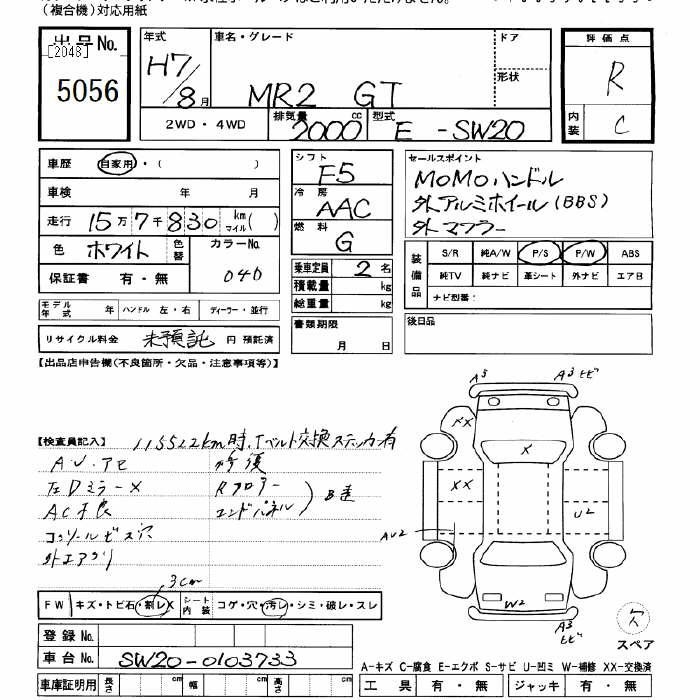 (複合機)対応用紙
出品No.
[2048]
5056
年式
H7/8月
車名・グレード
MR2 GT
ドア
形状
2WD・4WD
排気量 2000 cc
型式 E-SW20
評価点
R
内装 C
車歴 自家用・( )
車検 年 月
走行 15万7千830 km マイル( )
色 ホワイト 色替 カラーNo. 040
保証書 有・無
モデル年式 年 ハンドル 左・右 ディーラー・並行
リサイクル料金 未預託 円 預託済
シフト F5
冷房 AAC
燃料 G
乗車定員 2名
積載量 kg
総重量 kg
書類期限 月 日
セールスポイント
MOMOハンドル
外アルミホイール(BBS)
外マフラー
装備品
S/R 純A/W P/S P/W ABS
純TV 純ナビ 革シート 外ナビ エアB
ナビ型番:
後日品
【出品店申告欄(不良箇所・欠品・注意事項等)】
【検査員記入】 115522km時、Tベルト交換ステッカー有
AU・アセ 修復
左Dミラー× Rフロアー
AC不良 エンドパネル
B違
コンソールビス穴
外エアクリ
3cm
FW キズ・トビ石・割レX シート内装 コゲ・穴・汚レ・シミ・破レ・スレ
登録No.
車台No. SW20-0103733
車庫証明用 長さ cm 幅 cm 高さ cm
A3
A3 ヒビ
XX
X
XX
U2
AU2
W2
A3
ヒビ
欠
スペア
A-キズ C-腐食 E-エクボ S-サビ U-凹ミ W-補修 XX-交換済
工具 有・無 ジャッキ 有・無